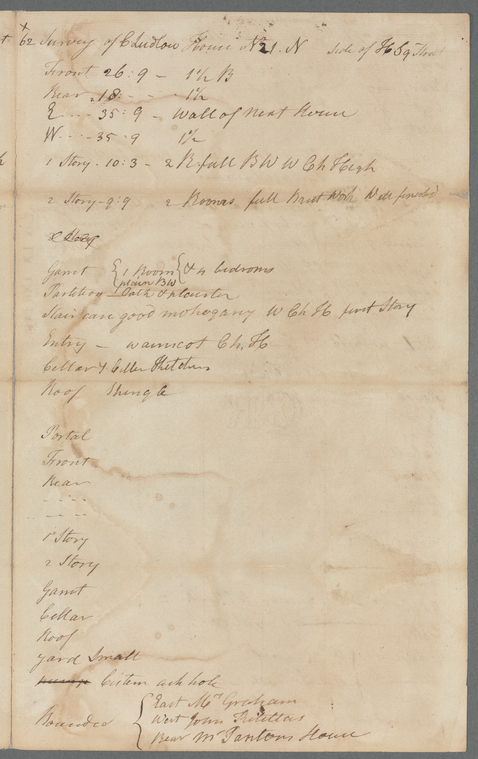 x 62 Survey of C Ludlow House No 21. N Side of H Sq Street
Front 26:9 - 1½ B
Rear 18: - 1½
E - - - 35:9 - Wall of Next House
W - - - 35:9 1½
1 Story - 10:3 - 2 R full BW W Ch High
2 Story - 9:9 2 Rooms full Brest Work Well finished
2 Story
Garret { 1 Room { & 4 bedrooms
plain BW
Partition Lath & plaister
Stair case good mohogany W Ch H first Story
Entry - wainscot Ch. H
Cellar & Celler Kitchen
Roof Shingle
Portal
Front
Rear
- - - -
- - - -
1 Story
2 Story
Garret
Cellar
Roof
yard Small
Cistern ash hole
East Mrs Graham
Bounded { West John
Rear Mr Pantons House